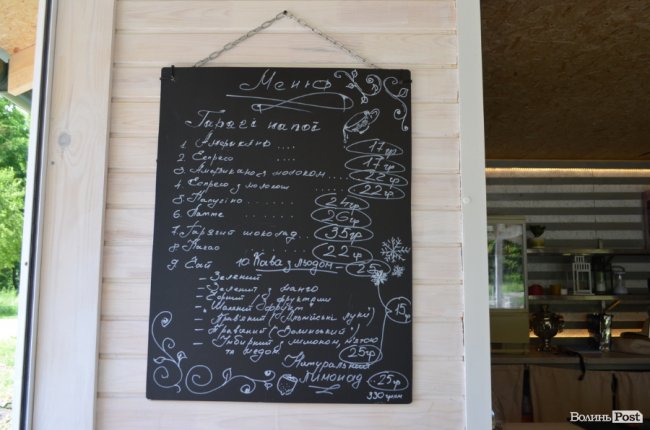 Меню
Гарячі напої
1. Американо .... 17гр
2. Еспресо .... 17гр
3. Американо з молоком ... 22гр
4. Еспресо з молоком ..... 22гр
5. Капучіно ....... 24гр
6. Латте ....... 26гр
7. Гарячий шоколад .... 35гр
8. Какао ....... 22гр
9. Чай
10. Кава з льодом - 25
- Зелений
- Зелений з манго
- Чорний
- Трав'яний ("Альпійські луки")
- Трав'яний ("Волинський")
- Імбирний з лимоном, м'ятою
та медом 25гр
15гр
Натуральний
лимонад - 25гр
330 грам
ВолиньPost